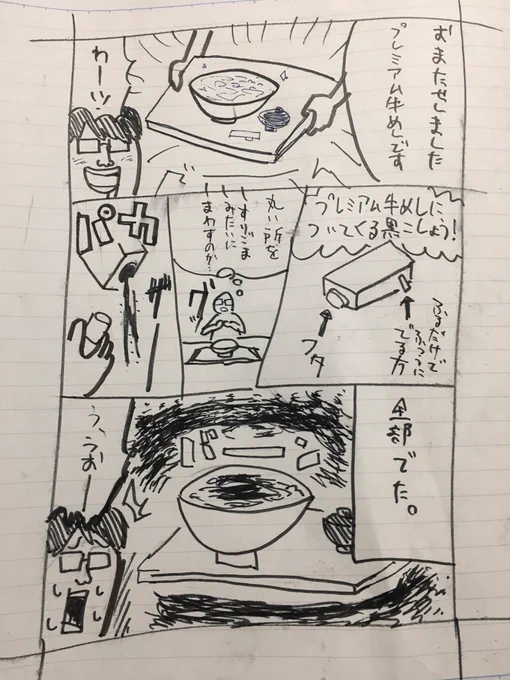 おまたせしました
プレミアム牛めしです
わーッ
プレミアム牛めしに
ついてくる黒こしょう!
ふるだけで
ふつうに
でる方
フタ
丸い所を
すりごま
みたいに
まわすのか…
グッ
パカ
ザーーー
全部でた。
バーン
う、うおーー